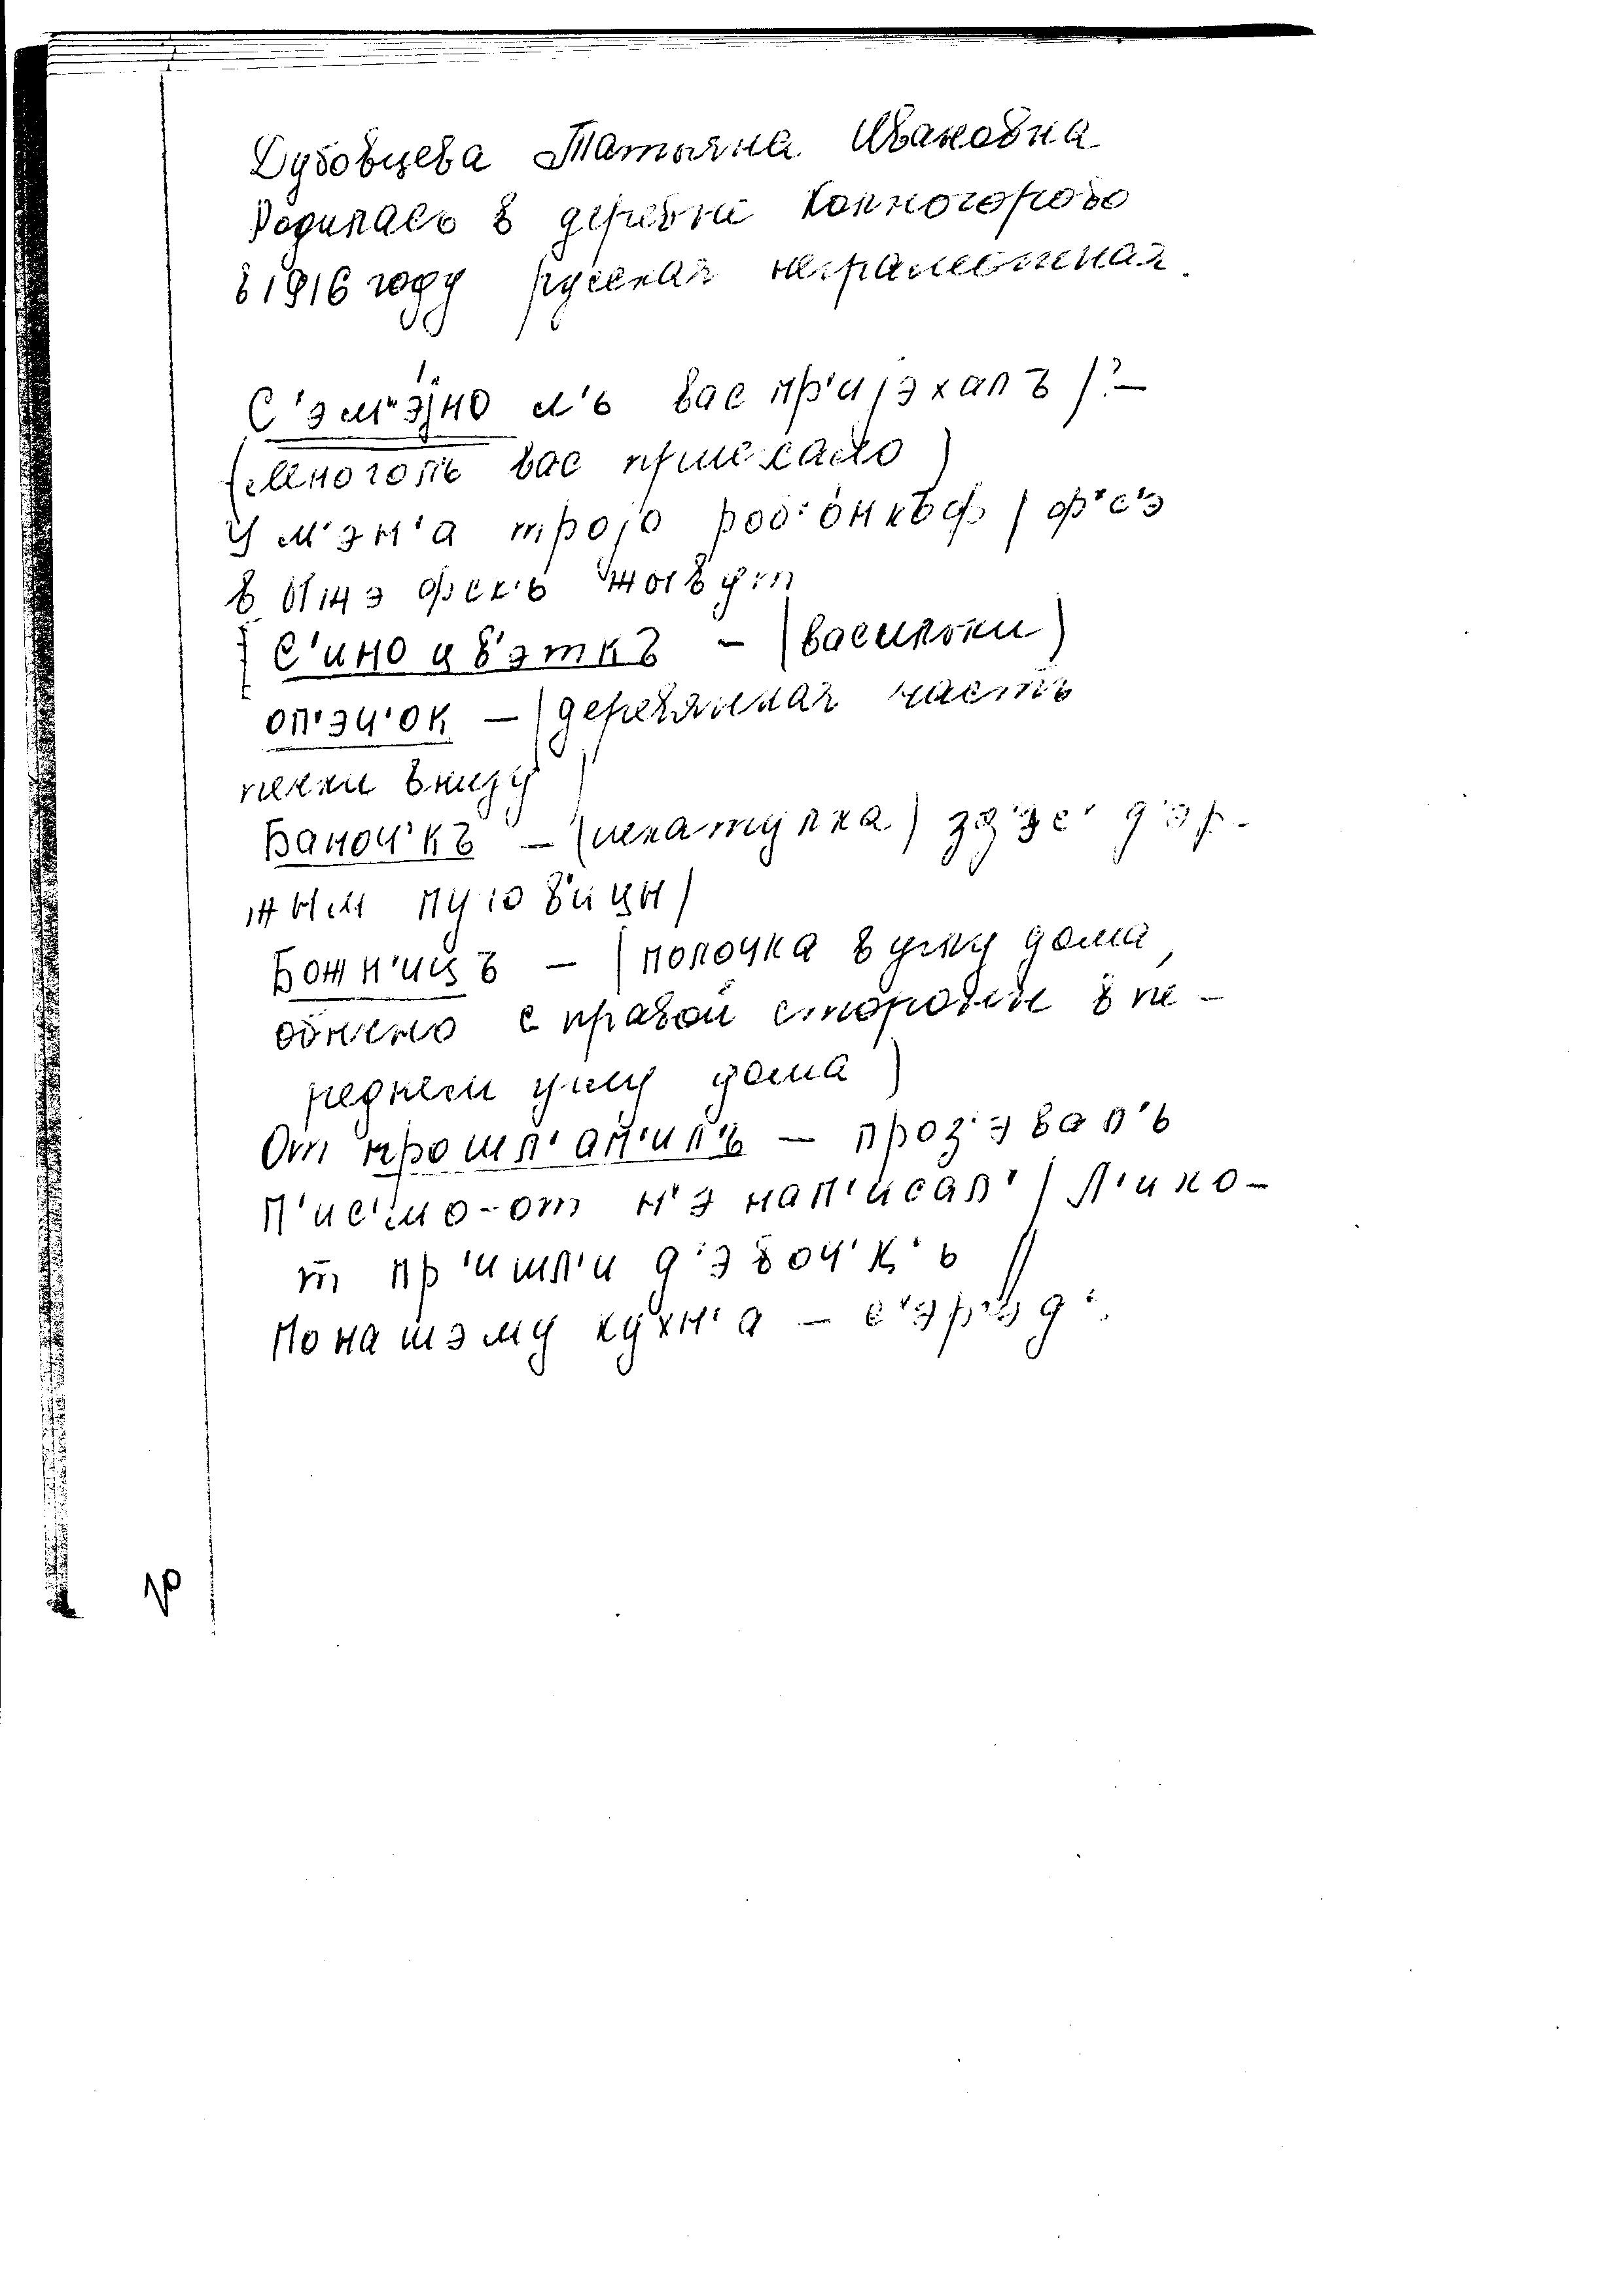 Дубовцева Татьяна Ивановна
Родилась в деревне Копногорово
в 1916 году русская неграмотная.
С'эм'эjно л'ь вас пр'иjэхалъ/?–
(Многоль вас приехало)
У м'эн'а троjо роб'онкъф / ф'с'э
в Ыжэфск'ь жывут
[С'иноцв'эткъ – (васильки)
оп'эч'ок – (деревянная часть
печки внизу)
Баноч'къ – (шкатулка) зд'эс' д'эр-
жым пуговицы/
Божн'ицъ – (полочка в углу дома,
обычно с правой стороны в пе-
реднем углу дома)
От прошл'ап'ил'ь – проз'эвал'ь
П'ис'мо-от н'э нап'исал' / Л'ико-
т пр'ишл'и д'эвоч'к'ь //
По нашэму кухн'а – с'эр'эд'.